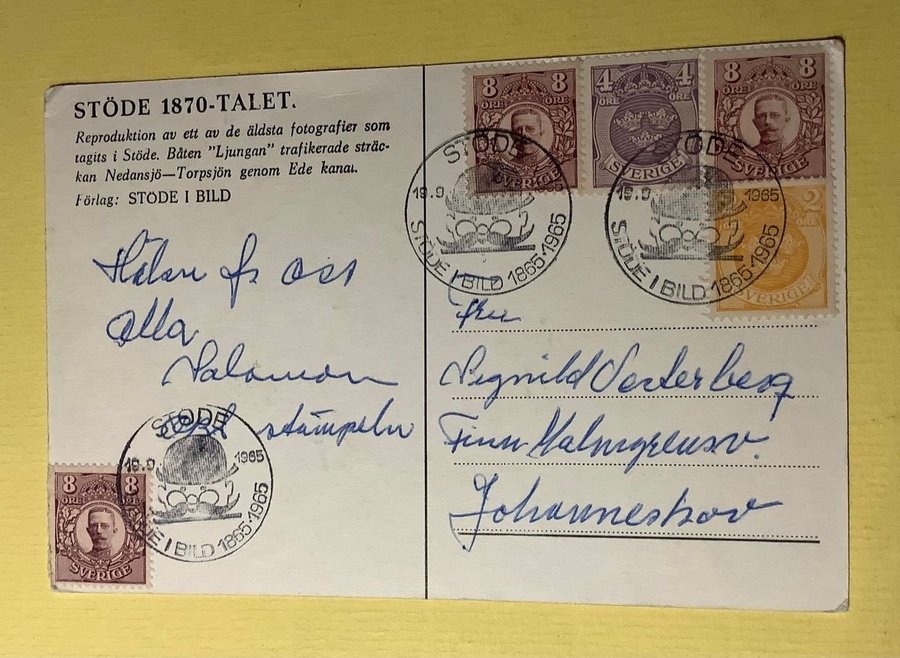 STÖDE 1870-TALET.
Reproduktion av ett av de äldsta fotografier som
tagits i Stöde. Båten "Ljungan" trafikerade sträc-
kan Nedansjö—Torpsjön genom Ede kanal.
Förlag: STÖDE I BILD
Hälsn fr oss
alla
Salomon
stämpeln
8 8
ÖRE ÖRE
SVERIGE
4 4
ÖRE ÖRE
SVERIGE
8 8
ÖRE ÖRE
SVERIGE
2
SVERIGE
STÖDE
19.9
STÖDE I BILD 1865-1965
STÖDE
19.9 1965
STÖDE I BILD 1865-1965
Fru
Signild Vesterberg
Finn Malmgrensv.
Johanneshov
STÖDE
19.9 1965
STÖDE I BILD 1865-1965
8 8
ÖRE ÖRE
SVERIGE